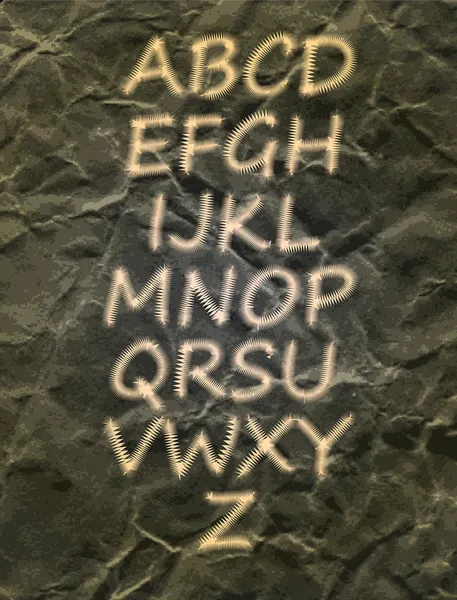 ABCD
EFGH
IJKL
MNOP
QRSU
VWXY
Z